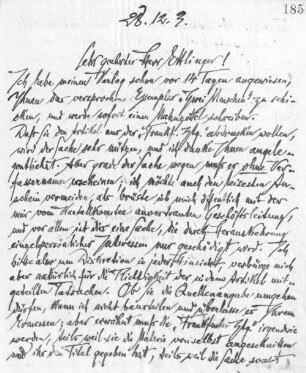 185
28.12.3.
Sehr geehrter Herr Ettlinger!
Ich habe meinen Verlag schon vor 14 Tagen angewiesen,
Ihnen das versprochene Exemplar „Zwei Menschen“ zu schi-
cken, und werde sofort einen Mahnzettel schreiben.
Daß Sie den Artikel aus der „Frankf. Ztg. abdrucken wollen,
wird der Sache sehr nützen, und ich danke Ihnen angele-
gentlichst. Aber grade der Sache wegen muß er ohne Ver-
fassernamen erscheinen; ich möchte auch den leisesten An-
schein vermeiden, als brüste ich mich öffentlich mit der
mir vom Kartellkomitee anvertrauten Geschäftsleitung,
und vor allem ist dies eine Sache, die durch Herauskehrung
einzelpersönlicher Interessen nur geschädigt wird. Ich
bitte also um Diskretion in jeder Hinsicht, verbürge mich
aber natürlich für die Richtigkeit der in dem Artikel mit-
geteilten Tatsachen. Ob Sie die Quellenangabe umgehen
dürfen, kann ich nicht beurteilen und überlasse es Ihrem
Ermessen; aber erwähnt muß die „Frankfurter Ztg.“ irgendwie
werden, teils weil sie die Materie
und ihr den Titel gegeben hat, teils weil die Sache sonst